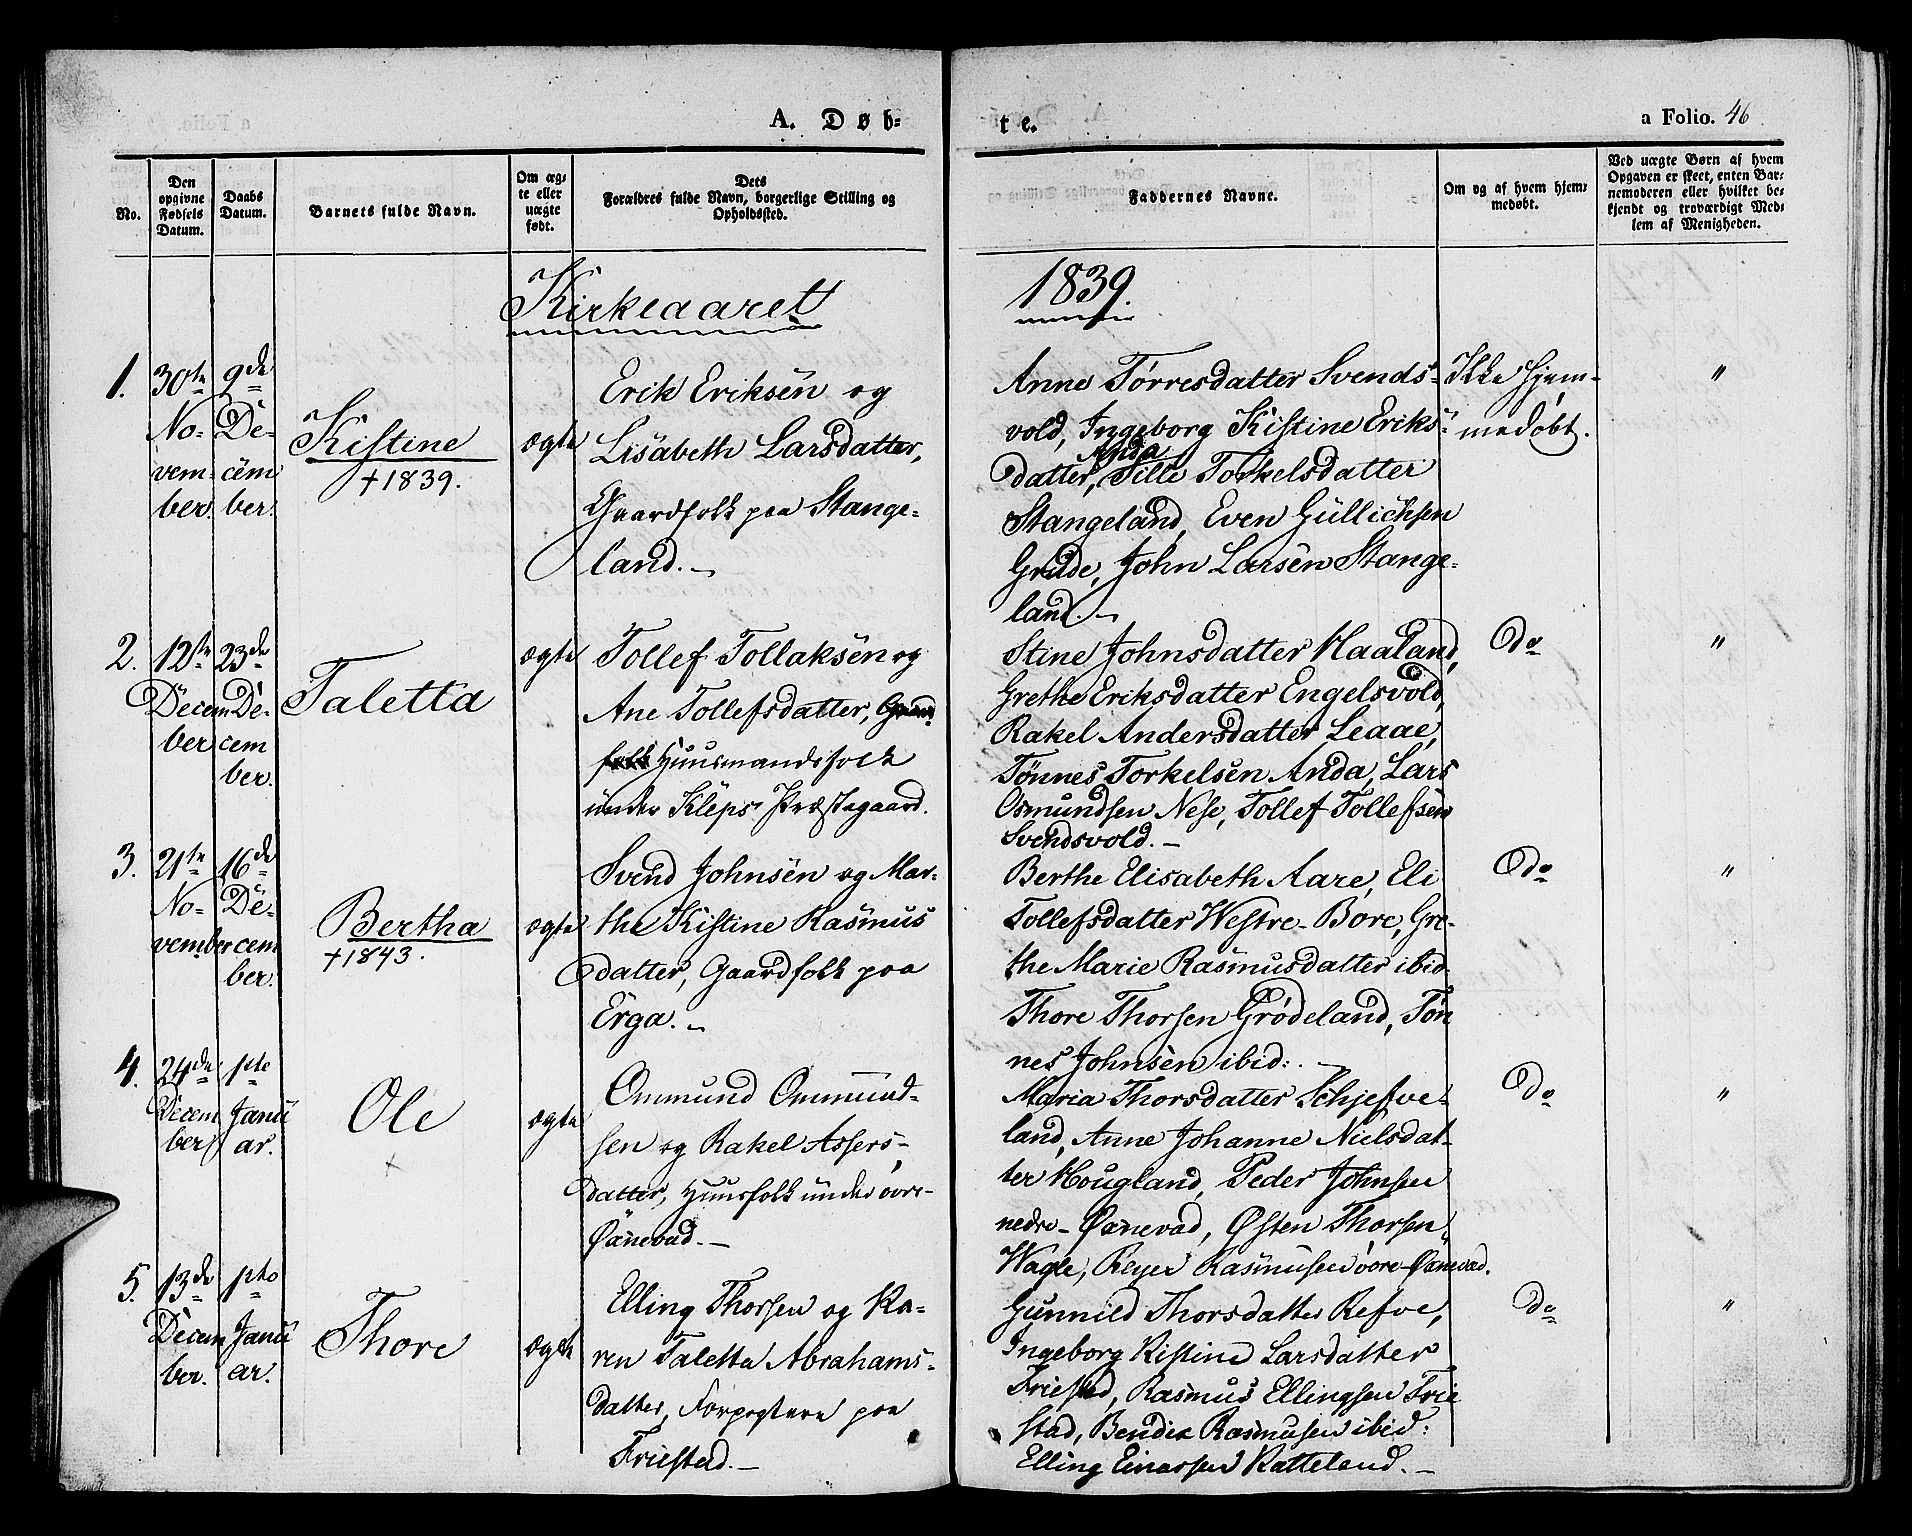 A. Døb-
te.
a Folio. 46
No.
Den opgivne Fødsels Datum.
Daabs Datum.
Barnets fulde Navn.
Om ægte eller uægte født.
Dets
Forældres fulde Navn, borgerlige Stilling og
Opholdssted.
Faddernes Navne.
Om og af hvem hjem-
medøbt.
Ved uægte Børn af hvem
Opgaven er skeet, enten Bar-
nemoderen eller hvilket be-
kjendt og troværdigt Med-
lem af Menigheden.
Kirkeaaret
1839.
1.
30te
No-
vem-
ber.
9de
De-
cem
ber.
Kistine
+1839.
ægte
Erik Eriksen og
Lisabeth Larsdatter,
Gaardfolk paa Stange-
land.-
Anne Tørresdatter Svends-
vold, Ingeborg Kistine Eriks-
Anda
datter, Sille Torkelsdatter
Stangeland, Even Gullichsen
Grude, John Larsen Stange-
land.-
Ikke hjem-
medøbt.
"
2.
12te
Decem
ber
23de
De-
cem
ber.
Taletta
ægte
Tollef Tollaksen og
Ane Tollefsdatter, Gaard
folk Huusmandsfolk
under Kleps Præstegaard.
Stine Johnsdatter Haaland,
Grethe Eriksdatter Engelsvold,
Rakel Andersdatter Leaae,
Tønnes Torkelsen Anda, Lars
Osmundsen Nese, Tollef Tollefsen
Svendsvold.-
Do
"
3.
21te
No-
vember
16de
De-
cem
ber.
Bertha
+1843.
ægte
Svend Johnsen og Mar-
the Kistine Rasmus
datter, Gaardfolk paa
Erga.-
Berthe Elisabeth Aare, Eli
Tollefsdatter Westre-Bore, Gre-
the Marie Rasmusdatter ibid.
Thore Thorsen Grødeland, Tøn
nes Johnsen ibid:.-
Do
"
4.
24de
Decem
ber
1ste
Janu
ar.
Ole
+
ægte
Ommund Ommund-
sen og Rakel Assers-
datter, Huusfolk under øvre-
Øxnevad.-
Maria Thorsdatter Schjefve-
land, Anne Johanne Nielsdat-
ter Hougland, Peder Johnsen
nedre-Øxnevad, Østen Thorsen
Wagle, Reyer Rasmusen øvre-Øxnevad.
Do
"
5.
13de
Decem
ber.
1ste
Janu
ar.
Thore
ægte
Elling Thorsen og Ka-
ren Taletta Abrahams-
datter, Forpagtere paa
Friestad.-
Gunnild Thorsdatter Refve,
Ingeborg Kistine Larsdatter
Friestad, Rasmus Ellingsen Frie
stad, Bendix Rasmusen ibid:
Elling Einarsen Katteland.-
do
"